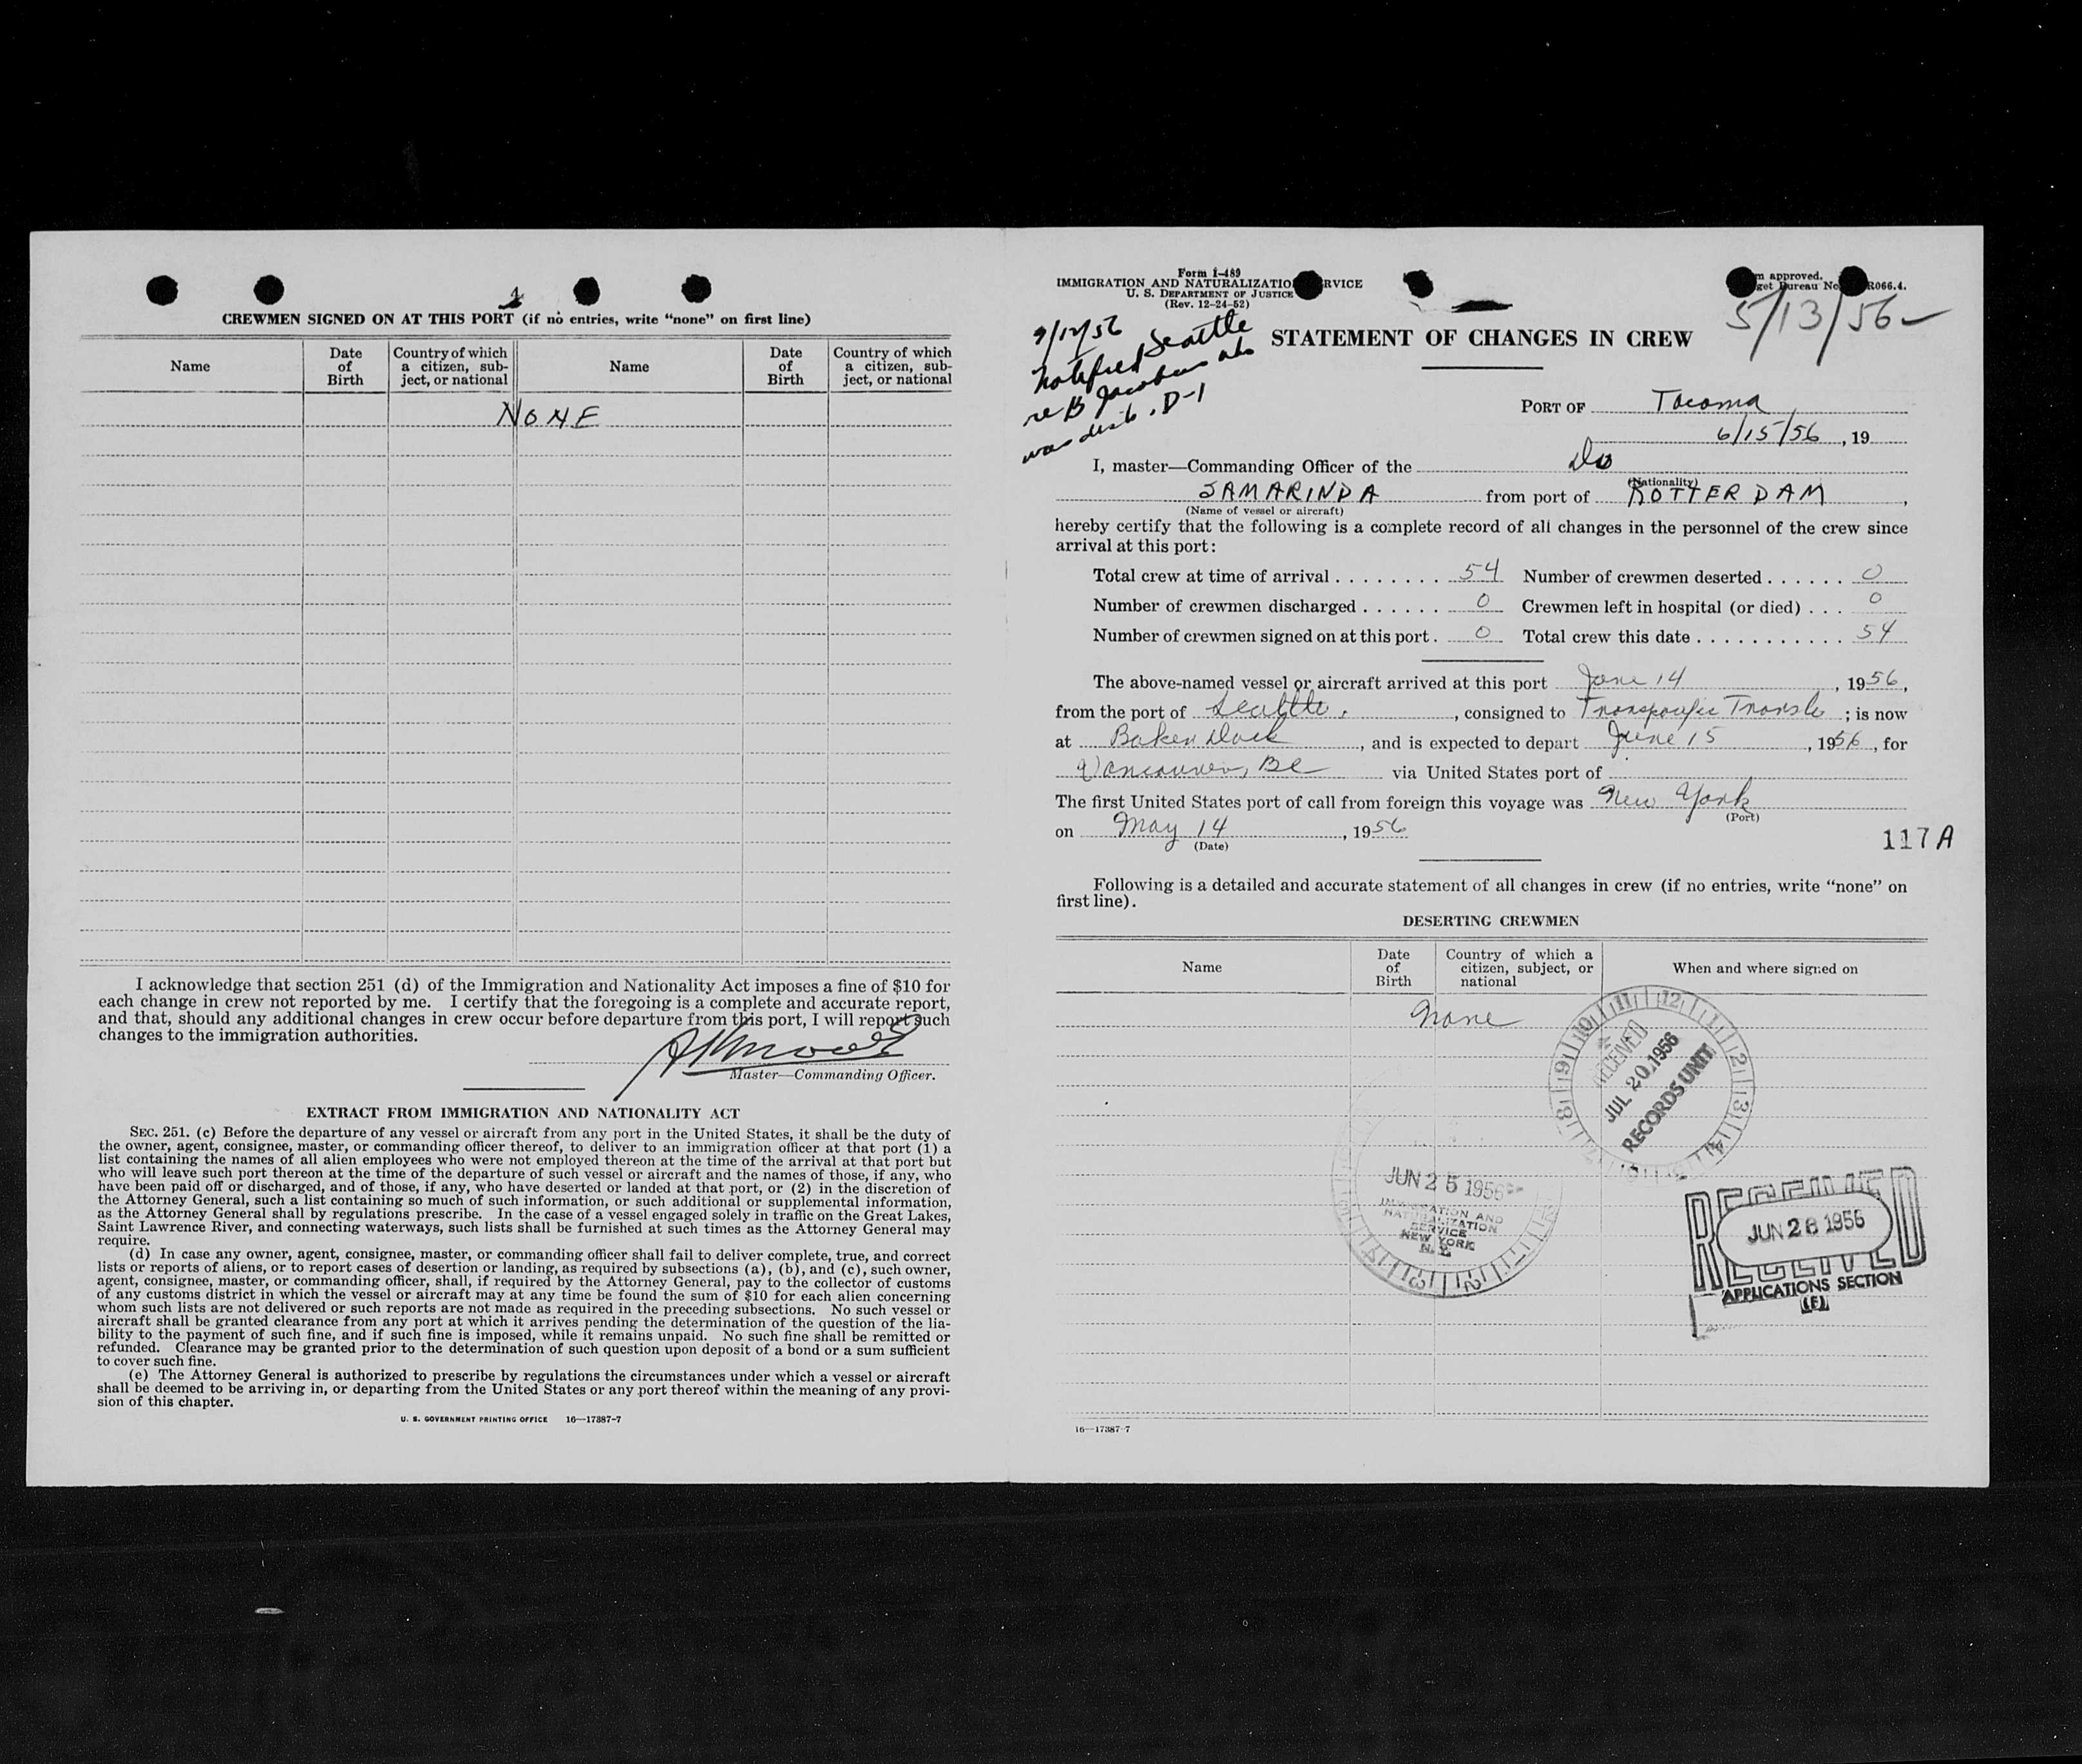 4
CREWMEN SIGNED ON AT THIS PORT (if no entries, write “none” on first line)
Name Date of Birth Country of which a citizen, subject, or national Name Date of Birth Country of which a citizen, subject, or national
NONE
I acknowledge that section 251 (d) of the Immigration and Nationality Act imposes a fine of $10 for
each change in crew not reported by me. I certify that the foregoing is a complete and accurate report,
and that, should any additional changes in crew occur before departure from this port, I will report such
changes to the immigration authorities.
Master—Commanding Officer.
EXTRACT FROM IMMIGRATION AND NATIONALITY ACT
SEC. 251. (c) Before the departure of any vessel or aircraft from any port in the United States, it shall be the duty of
the owner, agent, consignee, master, or commanding officer thereof, to deliver to an immigration officer at that port (1) a
list containing the names of all alien employees who were not employed thereon at the time of the arrival at that port but
who will leave such port thereon at the time of the departure of such vessel or aircraft and the names of those, if any, who
have been paid off or discharged, and of those, if any, who have deserted or landed at that port, or (2) in the discretion of
the Attorney General, such a list containing so much of such information, or such additional or supplemental information,
as the Attorney General shall by regulations prescribe. In the case of a vessel engaged solely in traffic on the Great Lakes,
Saint Lawrence River, and connecting waterways, such lists shall be furnished at such times as the Attorney General may
require.
(d) In case any owner, agent, consignee, master, or commanding officer shall fail to deliver complete, true, and correct
lists or reports of aliens, or to report cases of desertion or landing, as required by subsections (a), (b), and (c), such owner,
agent, consignee, master, or commanding officer, shall, if required by the Attorney General, pay to the collector of customs
of any customs district in which the vessel or aircraft may at any time be found the sum of $10 for each alien concerning
whom such lists are not delivered or such reports are not made as required in the preceding subsections. No such vessel or
aircraft shall be granted clearance from any port at which it arrives pending the determination of the question of the lia-
bility to the payment of such fine, and if such fine is imposed, while it remains unpaid. No such fine shall be remitted or
refunded. Clearance may be granted prior to the determination of such question upon deposit of a bond or a sum sufficient
to cover such fine.
(e) The Attorney General is authorized to prescribe by regulations the circumstances under which a vessel or aircraft
shall be deemed to be arriving in, or departing from the United States or any port thereof within the meaning of any provi-
sion of this chapter.
U. S. GOVERNMENT PRINTING OFFICE 16—17387-7
Form I-489
IMMIGRATION AND NATURALIZATIO RVICE
U. S. DEPARTMENT OF JUSTICE
(Rev. 12-24-52)
m approved.
get Bureau No. R066.4.
5/13/56
9/12/56
notified Seattle
re B Jacobus
was D-1
STATEMENT OF CHANGES IN CREW
PORT OF Tacoma
6/15/56, 19
I, master—Commanding Officer of the Du
(Nationality)
SAMARINDA from port of ROTTERDAM,
(Name of vessel or aircraft)
hereby certify that the following is a complete record of all changes in the personnel of the crew since
arrival at this port:
Total crew at time of arrival . . . . . . . . 54 Number of crewmen deserted . . . . . . 0
Number of crewmen discharged . . . . . . 0 Crewmen left in hospital (or died) . . . 0
Number of crewmen signed on at this port . 0 Total crew this date . . . . . . . . . . . 54
The above-named vessel or aircraft arrived at this port June 14, 1956,
from the port of Seattle, consigned to Transpacific Transp; is now
at Baker Dock, and is expected to depart June 15, 1956, for
Vancouver, BC via United States port of
The first United States port of call from foreign this voyage was New York
(Port)
on May 14, 1956
(Date)
117A
Following is a detailed and accurate statement of all changes in crew (if no entries, write “none” on
first line).
DESERTING CREWMEN
Name Date of Birth Country of which a citizen, subject, or national When and where signed on
None
RECEIVED
JUL 20 1956
RECORDS UNIT
JUN 25 1956
IMMIGRATION AND
NATURALIZATION
SERVICE
NEW YORK
N. Y.
RECEIVED
JUN 28 1956
APPLICATIONS SECTION
(F)
16—17387-7